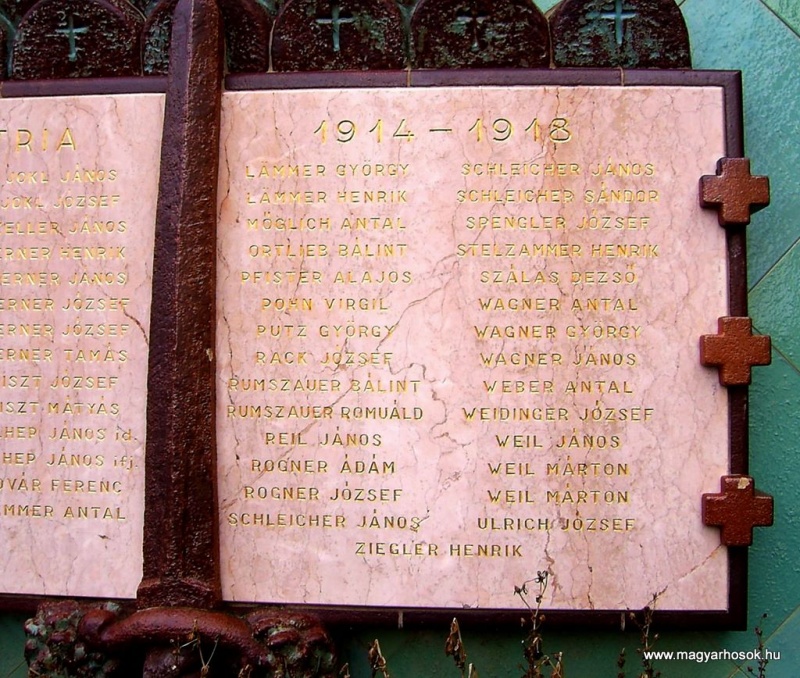 TRIA
JOKL JÁNOS
JOKL JÓZSEF
JÁNOS
HENRIK
JÁNOS
JÓZSEF
JÓZSEF
TAMÁS
JÓZSEF
MÁTYÁS
JÁNOS id.
JÁNOS ifj.
FERENC
ANTAL
1914 – 1918
LÄMMER GYÖRGY
LÄMMER HENRIK
MÖGLICH ANTAL
ORTLIEB BÁLINT
PFISTER ALAJOS
POHN VIRGIL
PUTZ GYÖRGY
RACK JÓZSEF
RUMSZAUER BÁLINT
RUMSZAUER ROMUÁLD
REIL JÁNOS
ROGNER ÁDÁM
ROGNER JÓZSEF
SCHLEICHER JÁNOS
SCHLEICHER JÁNOS
SCHLEICHER SÁNDOR
SPENGLER JÓZSEF
STELZAMMER HENRIK
SZÁLAS DEZSŐ
WAGNER ANTAL
WAGNER GYÖRGY
WAGNER JÁNOS
WEBER ANTAL
WEIDINGER JÓZSEF
WEIL JÁNOS
WEIL MÁRTON
WEIL MÁRTON
ULRICH JÓZSEF
ZIEGLER HENRIK
www.magyarhosok.hu